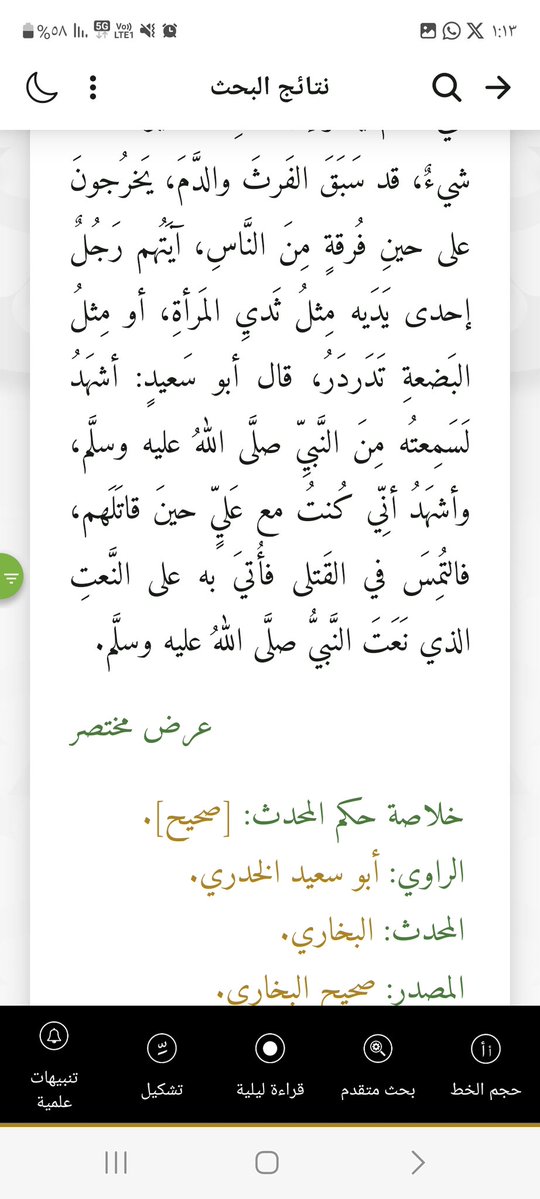 %٥٨ 5G Vo)) LTE1 ١:١٣
نتائج البحث
شيءٌ، قد سَبَقَ الفَرثَ والدَّمَ، يَخرُجونَ
على حينِ فُرقةٍ مِنَ النَّاسِ، آيَتُهم رَجُلٌ
إحدى يَدَيه مِثلُ ثَديِ المَرأةِ، أو مِثلُ
البَضعةِ تَدَردَرُ، قال أبو سَعيدٍ: أشهَدُ
لَسَمِعتُه مِنَ النَّبيِّ صلَّى اللهُ عليه وسلَّم،
وأشهَدُ أنِّي كُنتُ مع عَليٍّ حينَ قاتَلَهم،
فالتُمِسَ في القَتلى فأُتيَ به على النَّعتِ
الذي نَعَتَ النَّبيُّ صلَّى اللهُ عليه وسلَّم.
عرض مختصر
خلاصة حكم المحدث: [صحيح].
الراوي: أبو سعيد الخدري.
المحدث: البخاري.
المصدر: صحيح البخاري.
حجم الخط بحث متقدم قراءة ليلية تشكيل تنبيهات علمية